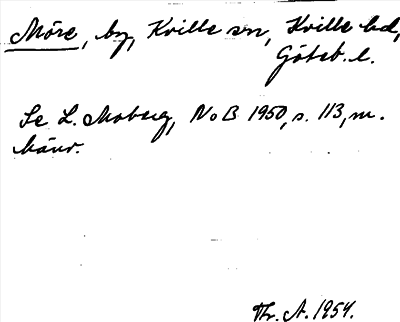 Möre, by, Kville sn, Kville hd,
Göteb. l.
Se L. Moberg, NoB 1950, s. 113, m.
hänv.
Thr. A. 1954.